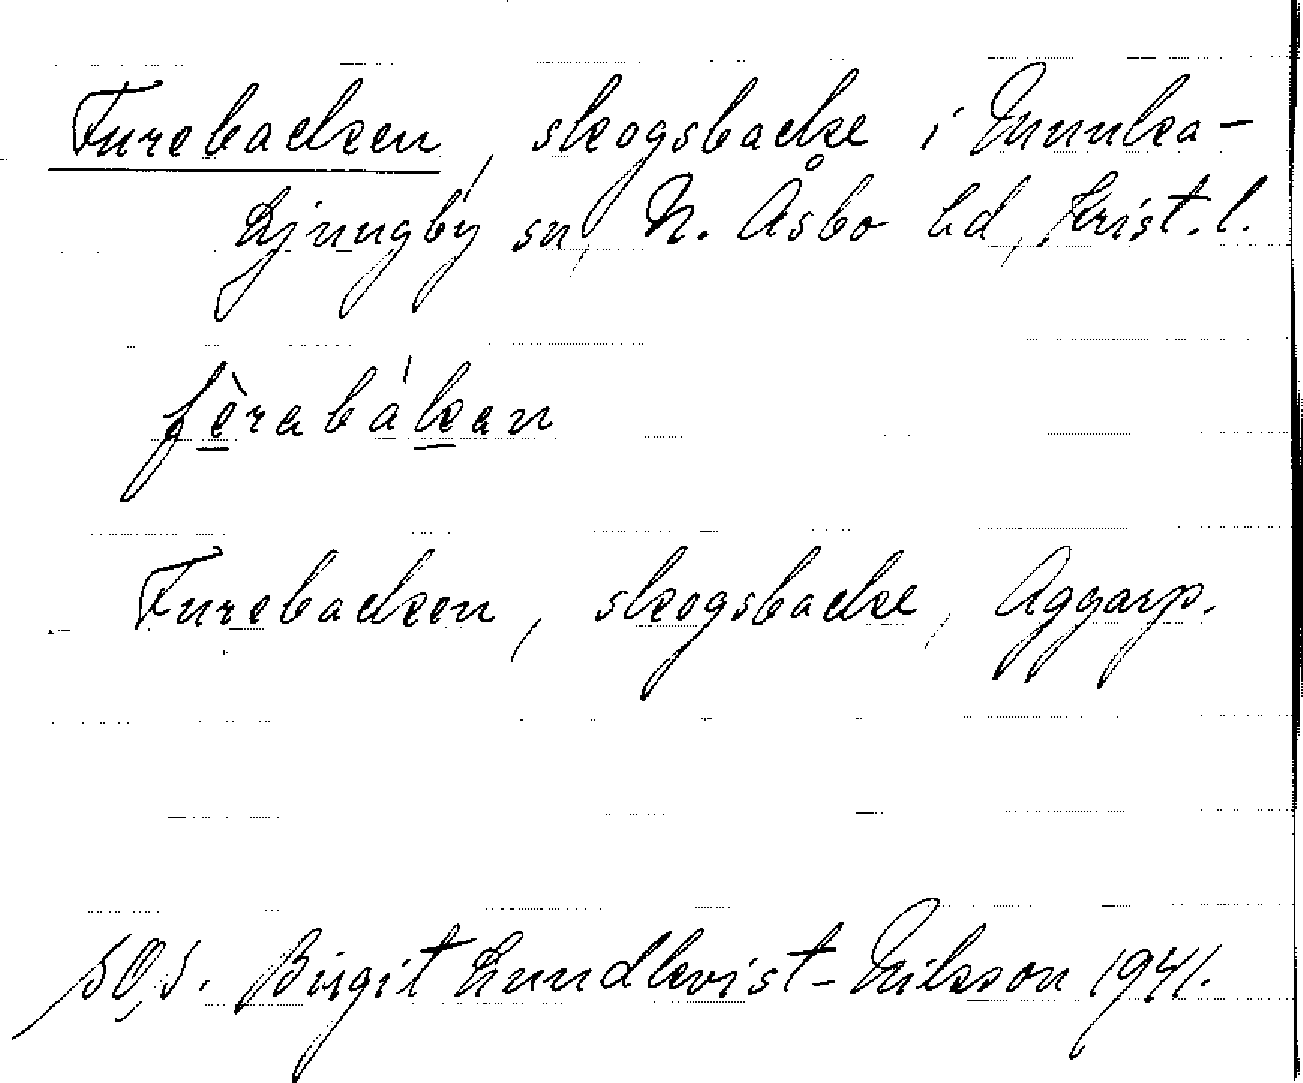 Furebacken, skogsbacke i Munka-
Ljungby sn, N. Åsbo hd, Krist. l.
fèrabákan
Furebacken, skogsbacke, Aggarp.
Birgit Lundkvist-Nilsson 1941.